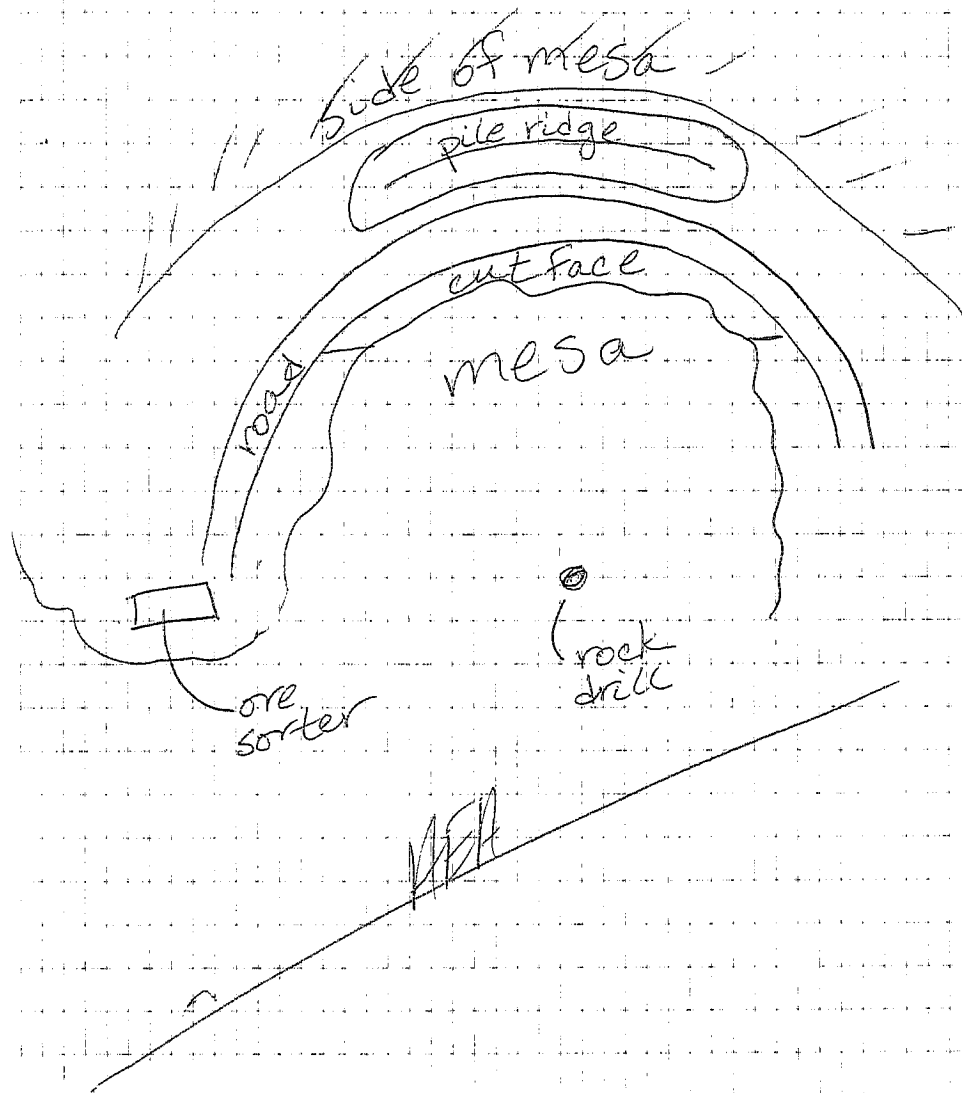 side of mesa
pile ridge
cut face
mesa
road
rock
drill
ore
sorter